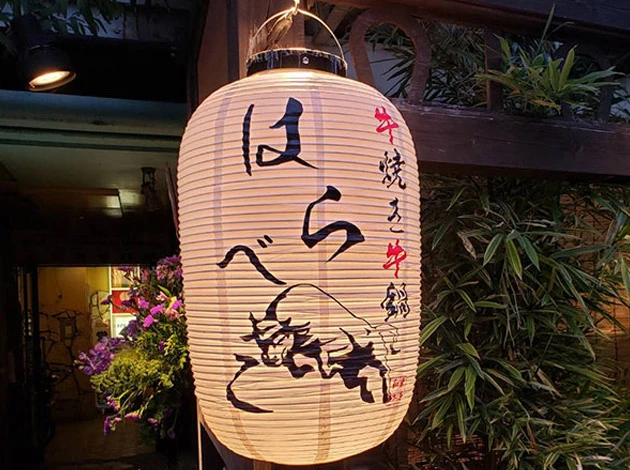 牛焼き牛鍋
はらべこ